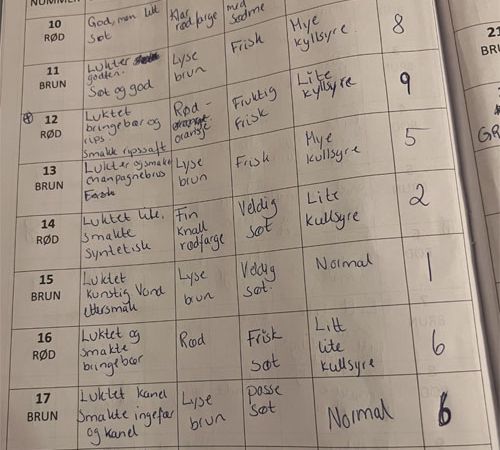 NUMMER
10 God, men litt Klar med Mye 8
RØD søt rødfarge sødme kyllsyre
11 Lukter Lyse Frisk Lite 9
BRUN godteri. brun kyllsyre
Søt og god
12 Luktet Rød- Fruktig Mye 5
RØD bringebær og oransje Frisk kullsyre
rips.
Smakte ripssaft
13 Lukter og smaker Lyse Frisk
BRUN champagnebrus brun
14 Luktet lite, Fin Veldig Lite 2
RØD smakte knall søt kullsyre
syntetisk rødfarge
15 Luktet Lyse Veldig Normal 1
BRUN kunstig Vond brun søt.
ettersmak
16 Luktet og Rød Frisk Litt 6
RØD smakte søt lite
bringebær kullsyre
17 Luktet kanel Lyse passe Normal 6
BRUN Smakte ingefær brun søt
og kanel
21